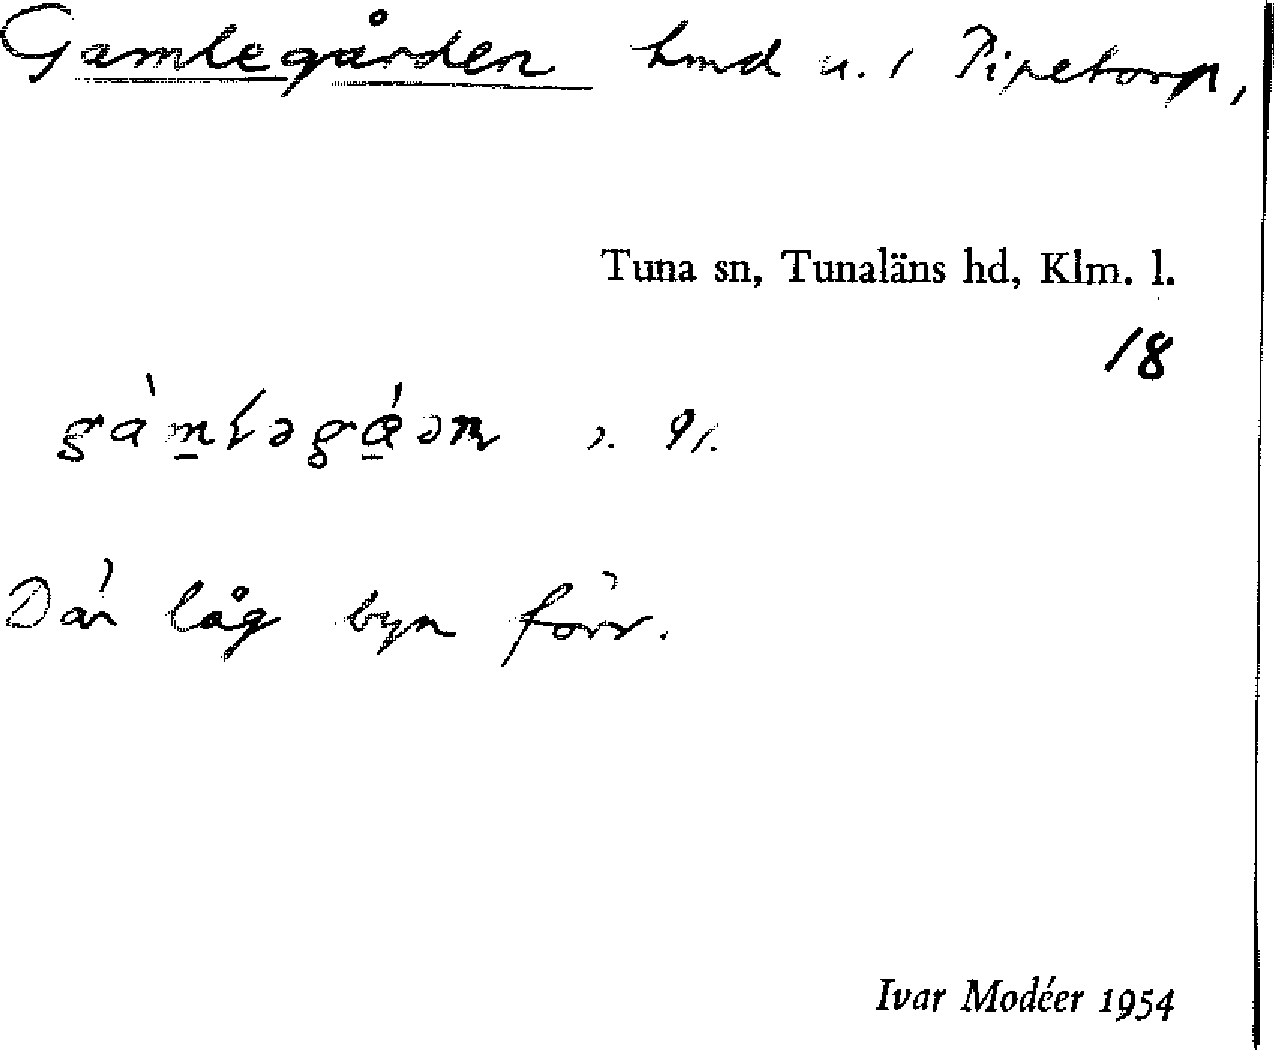 Gamlegården hmd u. 1 Pipetorp,
Tuna sn, Tunaläns hd, Klm. l.
18
Där låg byn förr.
Ivar Modéer 1954